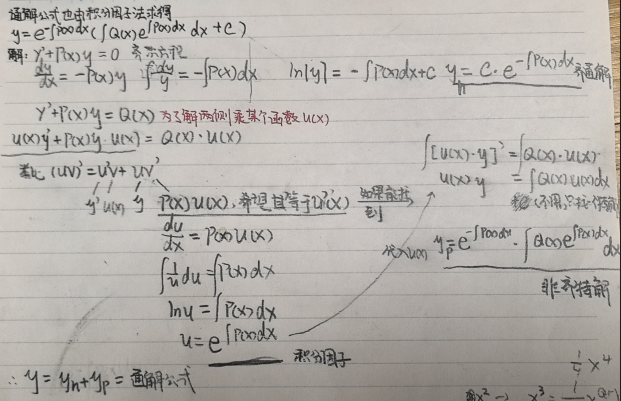 通解公式也由积分因子法求得
y=e^{-∫P(x)dx}(∫Q(x)e^{∫P(x)dx}dx+C)
解: y'+P(x)y=0 齐次方程
dy/dx=-P(x)y ∫dy/y=-∫P(x)dx ln|y|=-∫P(x)dx+C y=C·e^{-∫P(x)dx} 齐通解
y'+P(x)y=Q(x) 为了解两侧乘某个函数u(x)
u(x)y'+P(x)y u(x)=Q(x)·u(x)
类比(UV)'=U'V+UV'
y'u(x) y P(x)u(x),希望其等于u'(x) 如果能找到
du/dx=P(x)u(x)
∫1/u du=∫P(x)dx
lnu=∫P(x)dx
u=e^{∫P(x)dx}
积分因子
∫[u(x)·y]'=∫Q(x)·u(x)
u(x)y=∫Q(x)u(x)dx
代入u(x) y_p=e^{-∫P(x)dx}·∫Q(x)e^{∫P(x)dx}dx
非齐特解
∴ y=y_n+y_p=通解公式
1/4 x^4